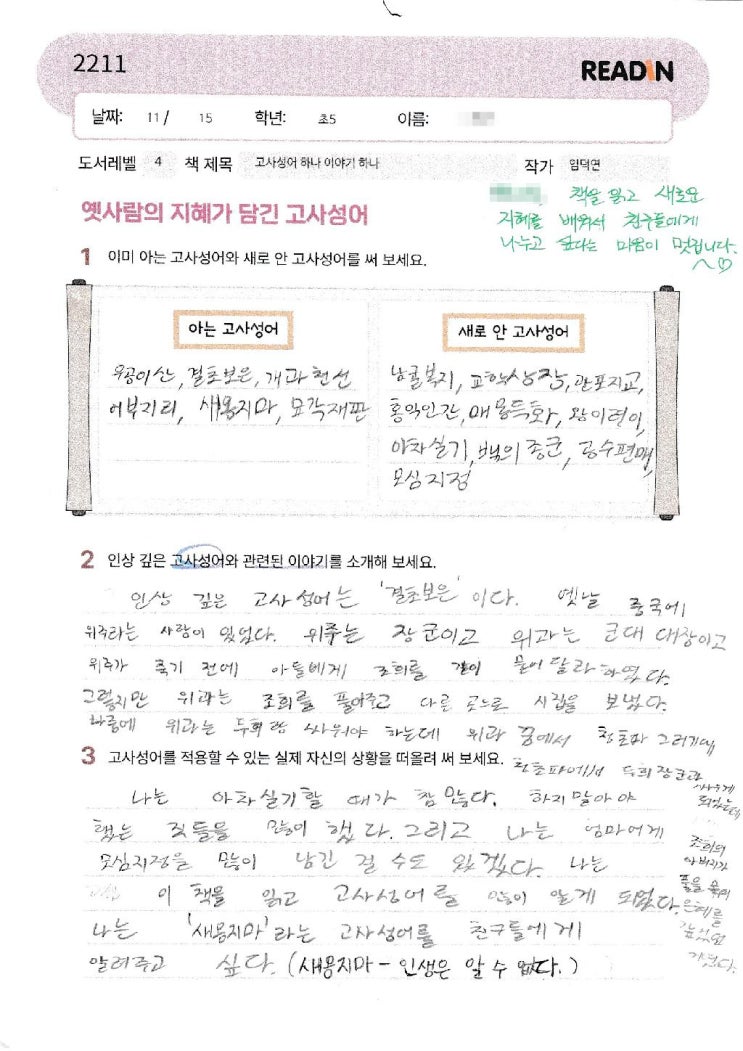 2211
READIN
날짜: 11/ 15 학년: 초5 이름:
도서레벨 4 책 제목 고사성어 하나 이야기 하나 작가 임덕연
옛사람의 지혜가 담긴 고사성어
책을 읽고 새로운
지혜를 배워서 친구들에게
나누고 싶다는 마음이 멋집니다.
1 이미 아는 고사성어와 새로 안 고사성어를 써 보세요.
아는 고사성어
우공이산, 결초보은, 개과천선
어부지리, 새용지마, 모각재판
새로 안 고사성어
남귤북지, 교학상장, 관포지교,
홍익인간, 매몽득화, 왕이련이,
야자실기, 백의종군, 공수편매,
모심지정
2 인상 깊은 고사성어와 관련된 이야기를 소개해 보세요.
인상 깊은 고사성어는 '결초보은'이다. 옛날 중국에
위주라는 사람이 있었다. 위주는 장군이고 위과는 군대 대장이고
위주가 죽기 전에 아들에게 조희를 같이 묻어달라 하였다.
그렇지만 위과는 조희를 풀어주고 다른 곳으로 시집을 보냈다.
나중에 위과는 두회랑 싸워야 하는데 위과 꿈에서 청초파 그러기에
3 고사성어를 적용할 수 있는 실제 자신의 상황을 떠올려 써 보세요.
청초파에서 두회장군과
싸우게
되었는데
조희의
아버지가
풀을 묶어
은혜를
갚았던
거였다.
나는 아자실기할 때가 참 많다. 하지말아야
했는 짓들을 많이 했다. 그리고 나는 엄마에게
모심지정을 많이 남긴 걸 수도 있겠다. 나는
이 책을 읽고 고사성어를 많이 알게 되었다.
나는 '새용지마'라는 고사성어를 친구들에게
알려주고 싶다. (새용지마 - 인생은 알 수 없다.)